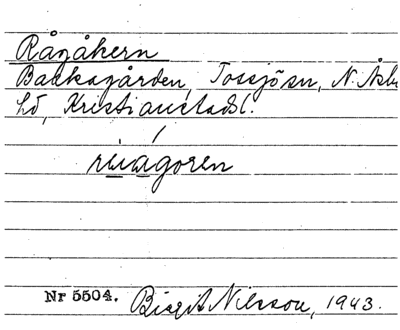 Rågåkern
Backagården, Tossjön, N. Åsbo
hd, Kristianstads l.
Nr 5504. Birgit Nilsson, 1943.